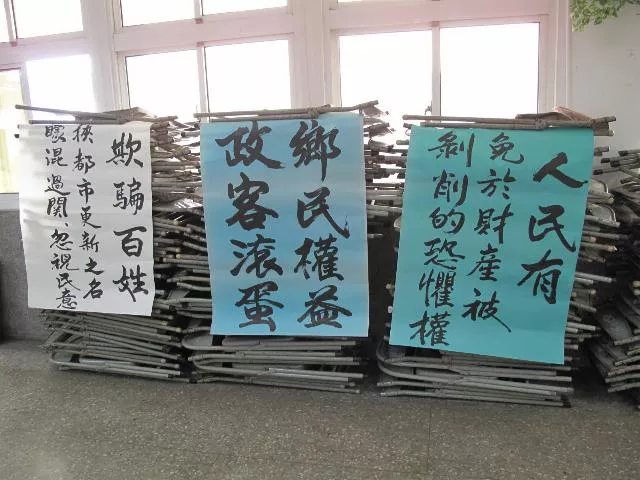 欺騙百姓
挾都市更新之名
矇混過關、忽視民意
鄉民權益
政客滾蛋
人民有
免於財產被
剝削的恐懼權